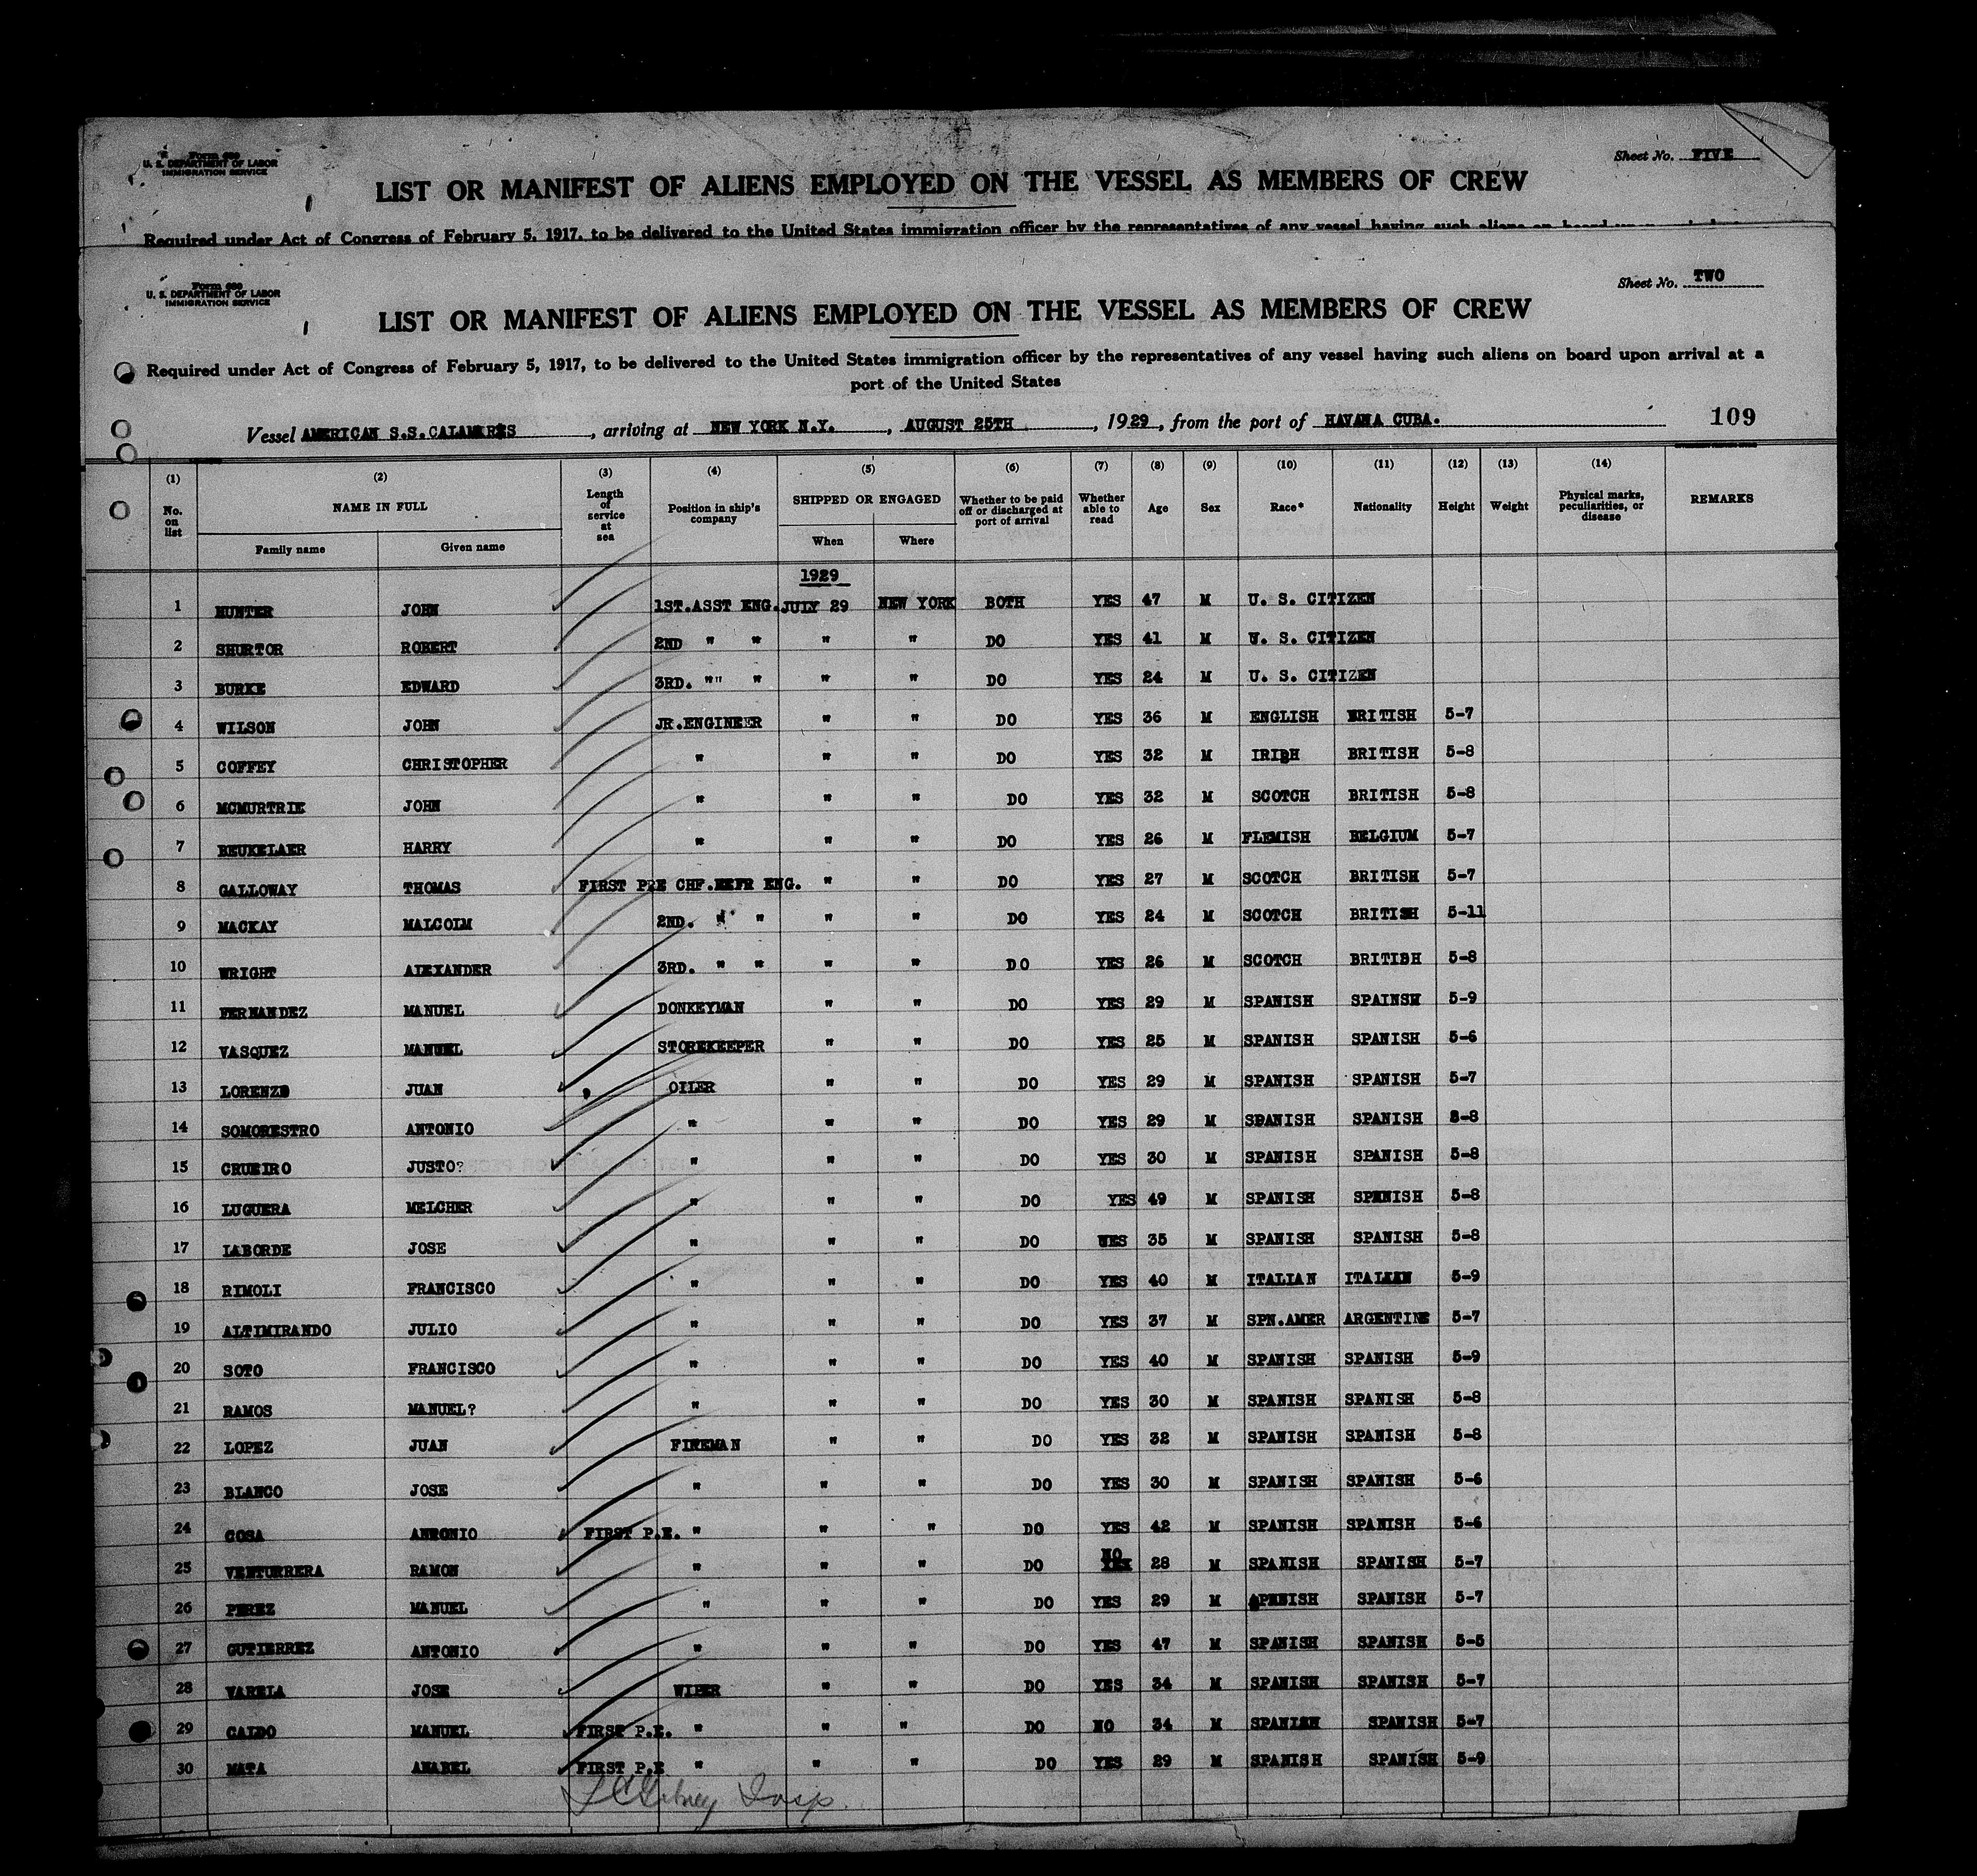 Form 680
U. S. DEPARTMENT OF LABOR
IMMIGRATION SERVICE
Sheet No. FIVE
LIST OR MANIFEST OF ALIENS EMPLOYED ON THE VESSEL AS MEMBERS OF CREW
Required under Act of Congress of February 5, 1917, to be delivered to the United States immigration officer by the representatives of any vessel having such aliens on board upon
Form 680
U. S. DEPARTMENT OF LABOR
IMMIGRATION SERVICE
Sheet No. TWO
LIST OR MANIFEST OF ALIENS EMPLOYED ON THE VESSEL AS MEMBERS OF CREW
Required under Act of Congress of February 5, 1917, to be delivered to the United States immigration officer by the representatives of any vessel having such aliens on board upon arrival at a
port of the United States
Vessel AMERICAN S.S.CALAMARES, arriving at NEW YORK N.Y., AUGUST 25TH, 1929, from the port of HAVANA CUBA. 109
(1) (2) (3) (4) (5) (6) (7) (8) (9) (10) (11) (12) (13) (14)
No. on list NAME IN FULL Length of service at sea Position in ship's company SHIPPED OR ENGAGED Whether to be paid off or discharged at port of arrival Whether able to read Age Sex Race* Nationality Height Weight Physical marks, peculiarities, or disease REMARKS
Family name Given name When Where
1929
1 HUNTER JOHN 1ST.ASST ENG. JULY 29 NEW YORK BOTH YES 47 M U. S. CITIZEN
2 SHURTOR ROBERT 2ND " " " " DO YES 41 M U. S. CITIZEN
3 BURKE EDWARD 3RD. "" " " " DO YES 24 M U. S. CITIZEN
4 WILSON JOHN JR.ENGINEER " " DO YES 36 M ENGLISH BRITISH 5-7
5 COFFEY CHRISTOPHER " " " DO YES 32 M IRISH BRITISH 5-8
6 MCMURTRIE JOHN " " " DO YES 32 M SCOTCH BRITISH 5-8
7 BEUKELAER HARRY " " " DO YES 26 M FLEMISH BELGIUM 5-7
8 GALLOWAY THOMAS FIRST PRE CHF.REFR ENG. " " DO YES 27 M SCOTCH BRITISH 5-7
9 MACKAY MALCOLM 2ND. " " " " DO YES 24 M SCOTCH BRITISH 5-11
10 WRIGHT ALEXANDER 3RD. " " " " DO YES 26 M SCOTCH BRITISH 5-8
11 FERNANDEZ MANUEL DONKEYMAN " " DO YES 29 M SPANISH SPAINSH 5-9
12 VASQUEZ MANUEL STOREKEEPER " " DO YES 25 M SPANISH SPANISH 5-6
13 LORENZO JUAN OILER " " DO YES 29 M SPANISH SPANISH 5-7
14 SOMORESTRO ANTONIO " " " DO YES 29 M SPANISH SPANISH 5-8
15 CRUEIRO JUSTO? " " " DO YES 30 M SPANISH SPANISH 5-8
16 LUGUERA MELCHER " " " DO YES 49 M SPANISH SPANISH 5-8
17 LABORDE JOSE " " " DO YES 35 M SPANISH SPANISH 5-8
18 RIMOLI FRANCISCO " " " DO YES 40 M ITALIAN ITALIAN 5-9
19 ALTIMIRANDO JULIO " " " DO YES 37 M SPN.AMER ARGENTINE 5-7
20 SOTO FRANCISCO " " " DO YES 40 M SPANISH SPANISH 5-9
21 RAMOS MANUEL? " " " DO YES 30 M SPANISH SPANISH 5-8
22 LOPEZ JUAN FIREMAN " " DO YES 32 M SPANISH SPANISH 5-8
23 BLANCO JOSE " " " DO YES 30 M SPANISH SPANISH 5-6
24 COSA ANTONIO FIRST P.E. " " " DO YES 42 M SPANISH SPANISH 5-6
25 VENTURRERA RAMON " " " DO NO YES 28 M SPANISH SPANISH 5-7
26 PEREZ MANUEL " " " DO YES 29 M SPANISH SPANISH 5-7
27 GUTIERREZ ANTONIO " " " DO YES 47 M SPANISH SPANISH 5-5
28 VARELA JOSE WIPER " " DO YES 34 M SPANISH SPANISH 5-7
29 CALDO MANUEL FIRST P.E. " " " DO NO 34 M SPANISH SPANISH 5-7
30 MATA ANABEL FIRST P.E " " " DO YES 29 M SPANISH SPANISH 5-9
Insp.